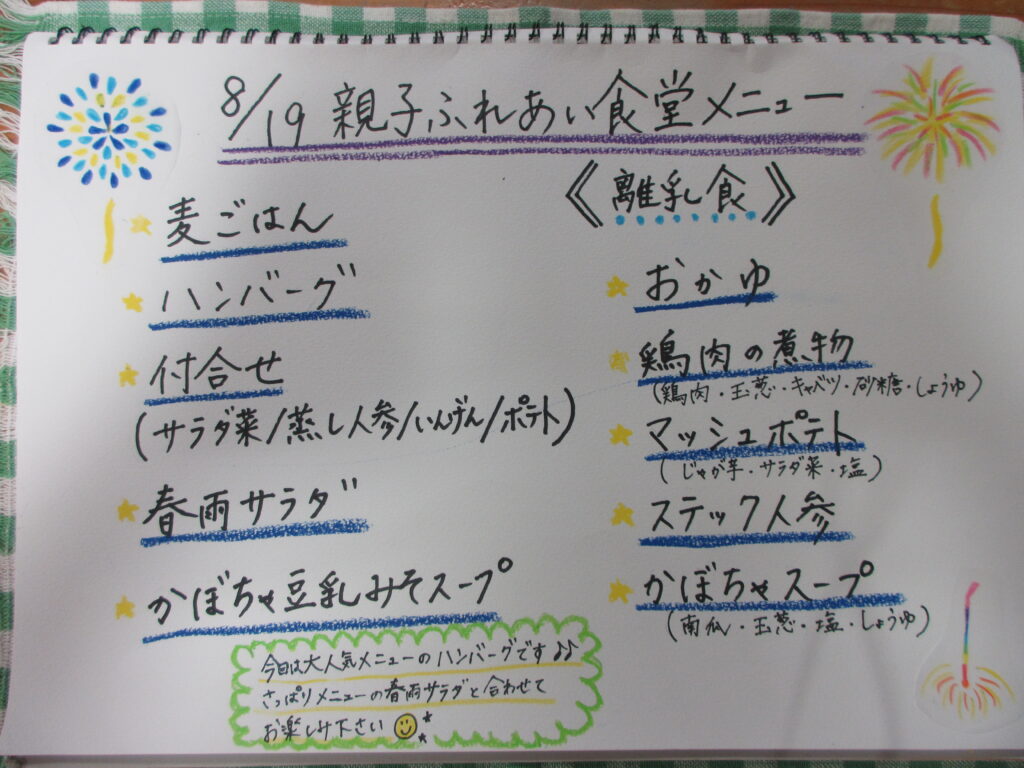 8/19 親子ふれあい食堂メニュー
麦ごはん
ハンバーグ
付合せ
(サラダ菜/蒸し人参/いんげん/ポテト)
春雨サラダ
かぼちゃ豆乳みそスープ
今日は大人気メニューのハンバーグです♪♪
さっぱりメニューの春雨サラダと合わせて
お楽しみ下さい
《離乳食》
おかゆ
鶏肉の煮物
(鶏肉・玉葱・キャベツ・砂糖・しょうゆ)
マッシュポテト
(じゃが芋・サラダ菜・塩)
スティック人参
かぼちゃスープ
(南瓜・玉葱・塩・しょうゆ)